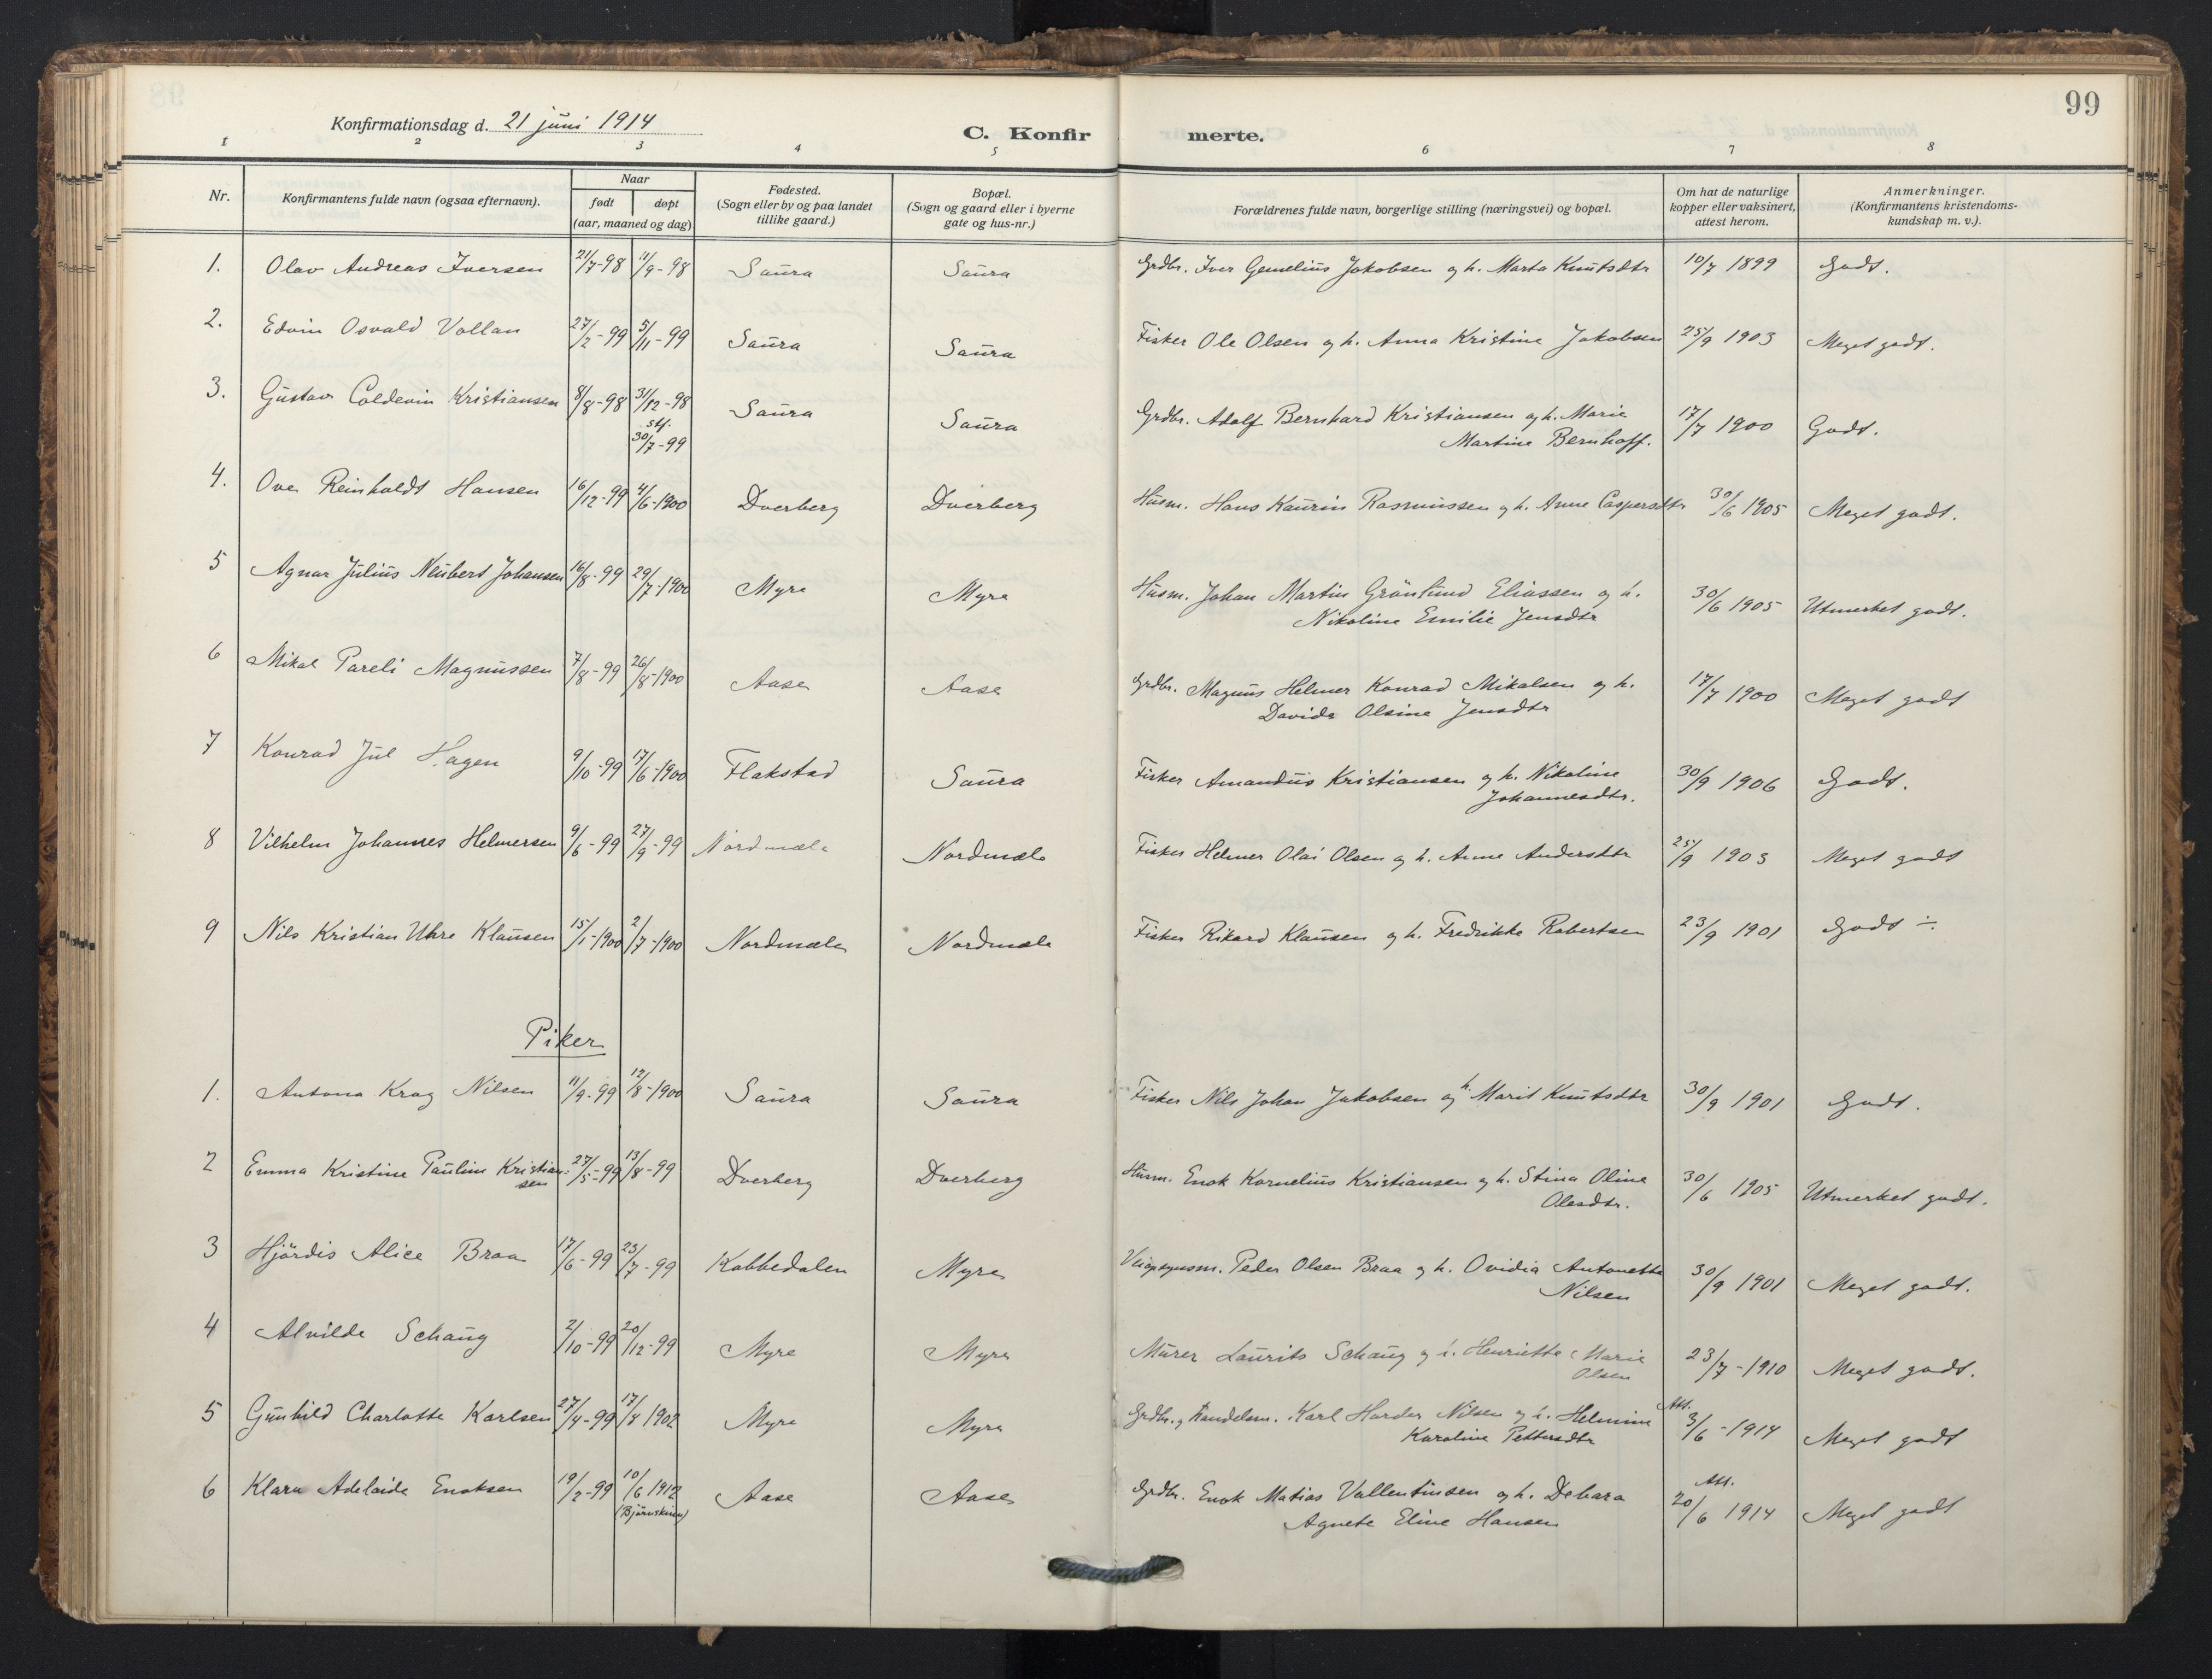 99
Konfirmationsdag d. 21 juni 1914
C. Konfirmerte.
1 2 3 4 5 6 7 8
Nr.
Konfirmantens fulde navn (ogsaa efternavn).
Naar
født døpt
(aar, maaned og dag)
Fødested.
(Sogn eller by og paa landet
tillike gaard.)
Bopæl.
(Sogn og gaard eller i byerne
gate og hus-nr.)
Forældrenes fulde navn, borgerlige stilling (næringsvei) og bopæl.
Om hat de naturlige
kopper eller vaksinert,
attest herom.
Anmerkninger.
(Konfirmantens kristendoms-
kundskap m. v.).
1. Olav Andreas Iversen 21/7-98 11/9-98 Saura Saura Grdbr. Iver Gemelius Jakobsen og h. Marta Knutsdtr 10/7 1899 Godt.
2. Edvin Osvald Vollan 27/2-99 5/11-99 Saura Saura Fisker Ole Olsen og h. Anna Kristine Jakobsen 25/9 1903 Meget godt.
3. Gustav Coldevin Kristiansen 8/8-98 31/12-98 Saura Saura Grdbr. Adolf Bernhard Kristiansen og h. Marie 17/7 1900 Godt.
stf.
30/7-99 Martine Bernhoff.
4. Ove Reinholdt Hansen 16/12-99 4/6-1900 Dverberg Dverberg Husm. Hans Kaurin Rasmussen og h. Anne Caspersdtr 30/6 1905 Meget godt.
5 Agnar Julius Neubert Johansen 16/8-99 29/7-1900 Myre Myre Husm. Johan Martin Grönlund Eliassen og h. 30/6 1905 Utmerket godt.
Nikoline Emilie Jensdtr
6 Mikal Pareli Magnussen 7/8-99 26/8-1900 Aase Aase Grdbr. Magnus Helmer Konrad Mikalsen og h. 17/7 1900 Meget godt
Davida Olsine Jensdtr
7 Konrad Jul Hagen 9/10-99 17/6-1900 Flakstad Saura Fisker Amandus Kristiansen og h. Nikoline 30/9 1906 Godt.
Johannesdtr.
8 Vilhelm Johannes Helmersen 9/6-99 27/9-99 Nordmæle Nordmæle Fisker Helmer Olai Olsen og h. Anne Andersdtr 25/9 1903 Meget godt
9 Nils Kristian Uhre Klausen 15/1-1900 2/7-1900 Nordmæle Nordmæle Fisker Rikard Klausen og h. Fredrikke Robertsen 23/9 1901 Godt ÷.
Piker
1. Antona Krag Nilsen 11/9-99 12/8-1900 Saura Saura Fisker Nils Johan Jakobsen og h. Marit Knutsdtr 30/9 1901 Godt.
2 Emma Kristine Pauline Kristian- 27/5-99 13/8-99 Dverberg Dverberg Husm. Enok Kornelius Kristiansen og h. Stina Oline 30/6 1905 Utmerket godt.
sen Olesdtr.
3 Hjördis Alice Braa 17/6-99 23/7-99 Kobbedalen Myre Veiopsynsm. Peder Olsen Braa og h. Ovidia Antonette 30/9 1901 Meget godt.
Nilsen
4 Alvilde Schaug 2/10-99 20/12-99 Myre Myre Murer Laurits Schaug og h. Henriette Marie 23/7-1910 Meget godt.
Olsen
5 Gunhild Charlotte Karlsen 27/4-99 17/8 1902 Myre Myre Grdbr. og Handelsm. Karl Harder Nilsen og h. Helmine Att. 3/6-1914 Meget godt
Karoline Pettersdtr
6 Klara Adelaide Enoksen 19/2-99 10/6 1912 Aase Aase Grdbr. Enok Matias Vallentinsen og h. Debora Att. 20/6 1914 Meget godt
(Björnskinn) Agnete Eline Hansen